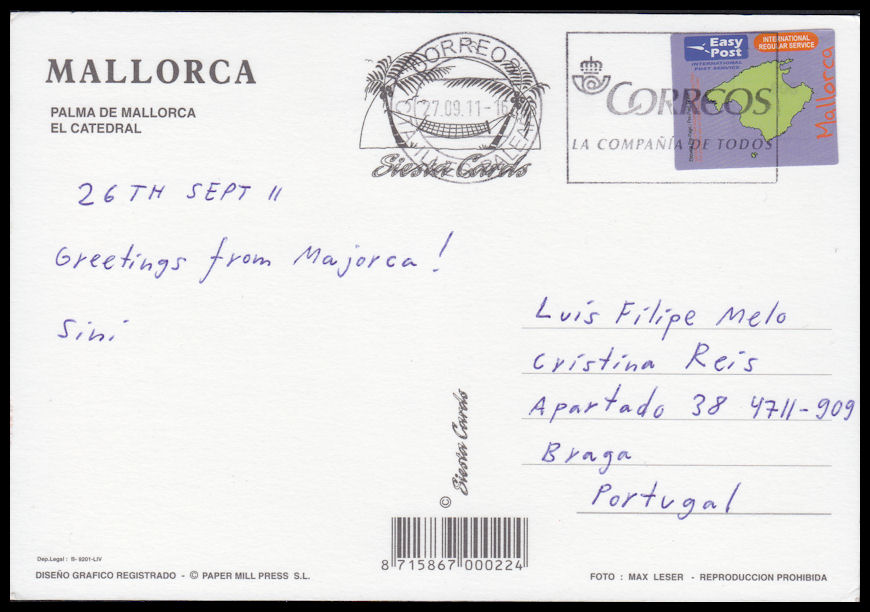 MALLORCA
PALMA DE MALLORCA
EL CATEDRAL
CORREO
27.09.11-16
Siesta Cards
CORREOS
LA COMPAÑÍA DE TODOS
Easy Post
INTERNATIONAL POST SERVICE
INTERNATIONAL REGULAR SERVICE
Mallorca
26TH SEPT 11
Greetings from Majorca!
Sini
Luis Filipe Melo
Cristina Reis
Apartado 38 4711-909
Braga
Portugal
© Siesta Cards
8 715867 000224
Dep.Legal : B- 9201-LIV
DISEÑO GRAFICO REGISTRADO - © PAPER MILL PRESS S.L.
FOTO : MAX LESER - REPRODUCCION PROHIBIDA